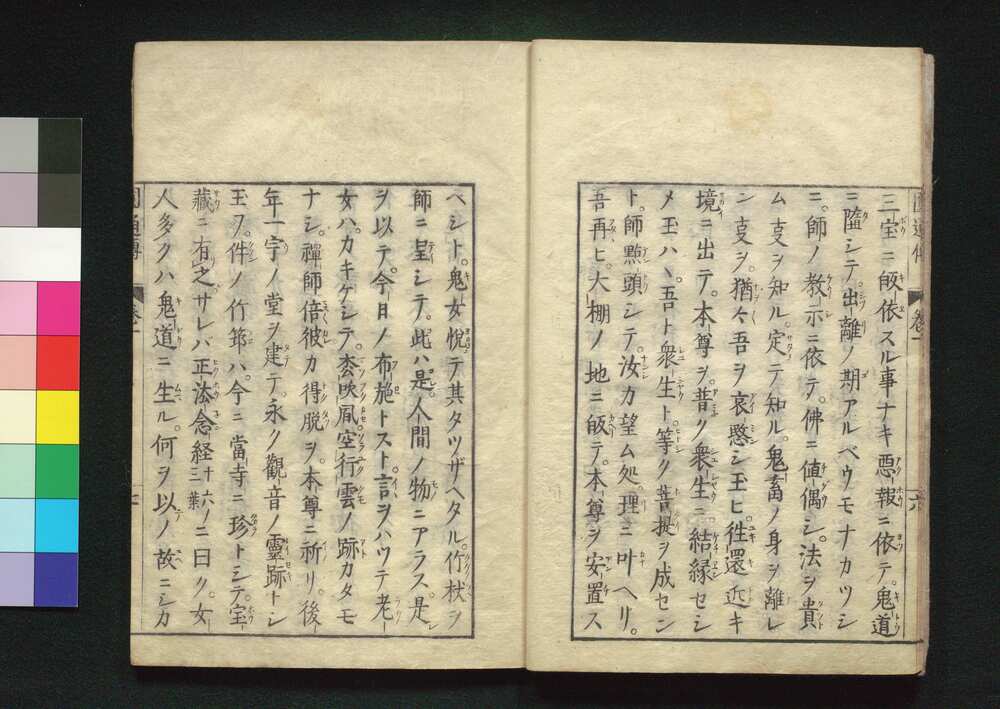 三宝ニ皈依スル事ナキ悪報ニ依テ。鬼道
ニ隨シテ。出離ノ期アルベウモナカツシ
ニ。師ノ教示ニ依テ。佛ニ値偶シ。法ヲ貴
ム支ヲ知ル。定テ知ル。鬼畜ノ身ヲ離レ
ン支ヲ。猶々吾ヲ哀愍シ玉ヒ。徃還近キ
境ニ出テ。本尊ヲ普ク衆生ニ。結縁セシ
メ玉ハヽ。吾ト衆生ト。等ク菩提ヲ成セン
ト。師點頭シテ。汝カ望ム処理ニ叶ヘリ。
吾再ヒ。大棚ノ地ニ皈テ。本尊ヲ安置ス
ベシト。鬼女悦テ其タツザヘタル。竹杖ヲ
師ニ呈シテ。此ハ是。人間ノ物ニアラス。是
ヲ以テ。今日ノ布施トスト。言ヲハツテ老
女ハ。カキケシテ。吹凬空行雲ノ跡カタモ
ナシ。禪師倍彼カ得脱ヲ。本尊ニ祈リ。後
年一宇ノ堂ヲ建テ。永ク觀音ノ靈跡トシ
玉ヲ。件ノ竹節ハ。今ニ當寺ニ珍トシテ。宝
藏ニ有之サレバ正法念経十六ノ三葉ニ曰ク。女
人多クハ鬼道ニ生ル。何ヲ以ノ故ニシカ